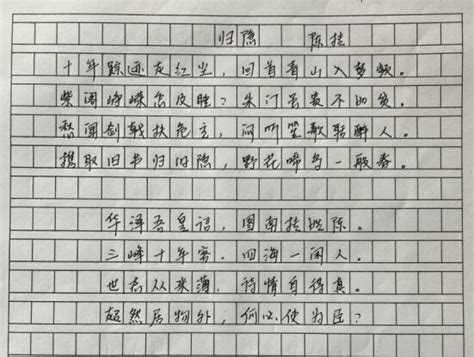 归隐 陈抟
十年踪迹走红尘，回首青山入梦频。
紫阁峥嵘怎及睡？朱门虽贵不如贫。
愁闻剑戟扶危主，闷听笙歌聒醉人。
携取旧书归旧隐，野花啼鸟一般春。
华泽吾皇诏，图南抟姓陈。
三峰十年客，四海一闲人。
世态从来薄，诗情自得真。
超然居物外，何必使为臣？